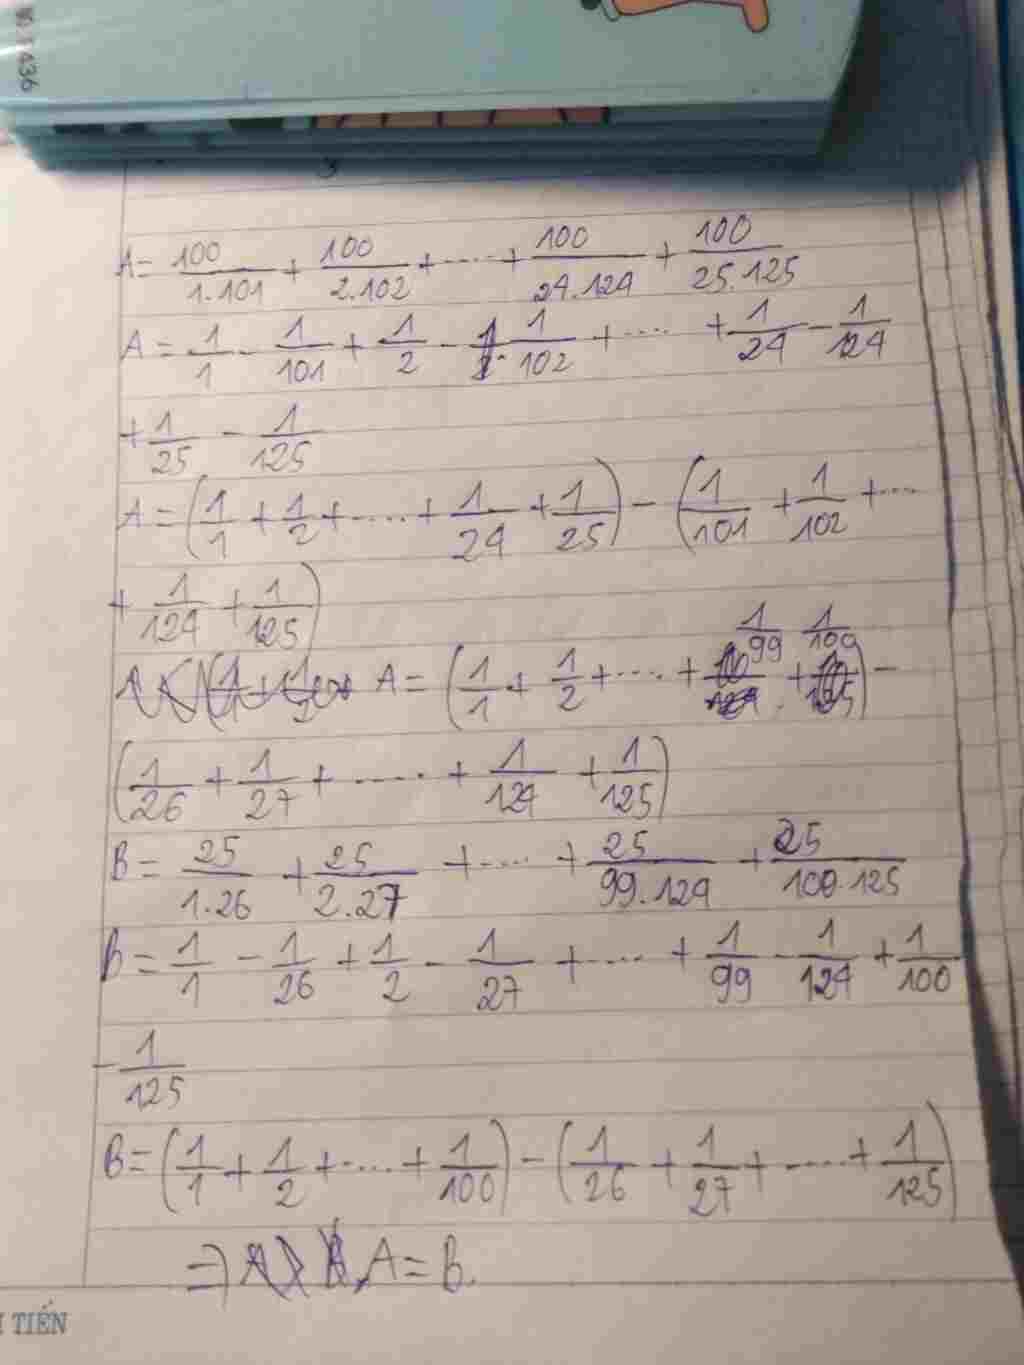 436
A = 100/1.101 + 100/2.102 + .... + 100/24.124 + 100/25.125
A = 1/1 - 1/101 + 1/2 - 1/102 + .... + 1/24 - 1/124
+ 1/25 - 1/125
A = (1/1 + 1/2 + .... + 1/24 + 1/25) - (1/101 + 1/102 + ...
+ 1/124 + 1/125)
A = (1/1 + 1/2 + .... + 1/99 + 1/100) -
(1/26 + 1/27 + ..... + 1/124 + 1/125)
B = 25/1.26 + 25/2.27 + .... + 25/99.124 + 25/100.125
B = 1/1 - 1/26 + 1/2 - 1/27 + .... + 1/99 - 1/124 + 1/100
- 1/125
B = (1/1 + 1/2 + .... + 1/100) - (1/26 + 1/27 + .... + 1/125)
=> A = B.
TIẾN